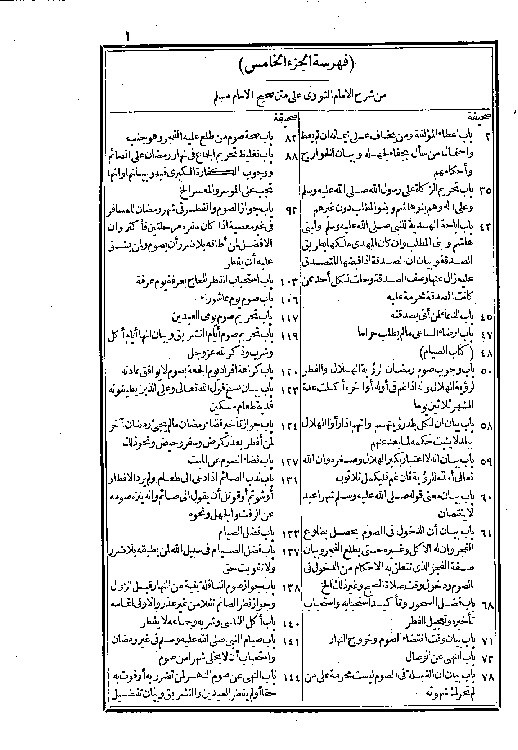 ١
(فهرسة الجزء الخامس)
من شرح الامام النووى على متن صحيح الامام مسلم
صحيفة
٢ باب اعطاء المؤلفة ومن يخاف على ايمانه ان لم يعط
واحتمال من سأل بجفاء لجهله وبيان الخوارج
وأحكامهم
٣٥ باب تحريم الزكاة على رسول الله صلى الله عليه وسلم
وعلى آله وهم بنو هاشم وبنو المطلب دون غيرهم
٤٢ باب اباحة الهدية للنبى صلى الله عليه وسلم ولبنى
هاشم وبنى المطلب وان كان المهدى ملكها بطريق
الصدقة وبيان ان الصدقة اذا قبضها المتصدق
عليه زال عنها وصف الصدقة وحلت لكل أحد ممن
كانت الصدقة محرمة عليه
٤٥ باب الدعاء لمن أتى بصدقته
٤٧ باب ارضاء الساعى مالم يطلب حراما
٤٨ (كتاب الصيام)
٥٠ باب وجوب صوم رمضان لرؤية الهلال والفطر
لرؤية الهلال وانه اذا غم فى أوله أو آخره أكملت عدة
الشهر ثلاثين يوما
٥٨ باب بيان ان لكل بلد رؤيتهم وانهم اذا رأوا الهلال
ببلد لا يثبت حكمه لما بعد عنهم
٥٩ باب بيان انه لا اعتبار بكبر الهلال وصغره وان الله
تعالى أمده للرؤية فان غم فليكمل ثلاثون
٦٠ باب بيان معنى قوله صلى الله عليه وسلم شهرا عيد
لا ينقصان
٦١ باب بيان أن الدخول فى الصوم يحصل بطلوع
الفجر وان له الأكل وغيره حتى يطلع الفجر وبيان
صفة الفجر الذى تتعلق به الاحكام من الدخول فى
الصوم ودخول وقت صلاة الصبح وغير ذلك الخ
٦٨ باب فضل السحور وتأكيد استحبابه واستحباب
تأخيره وتعجيل الفطر
٧١ باب بيان وقت انقضاء الصوم وخروج النهار
٧٢ باب النهى عن الوصال
٧٨ باب بيان ان القبلة فى الصوم ليست محرمة على من
لم تحرك شهوته
صحيفة
٨٢ باب صحة صوم من طلع عليه الفجر وهو جنب
٨٨ باب تغليظ تحريم الجماع فى نهار رمضان على الصائم
ووجوب الكفارة الكبرى فيه وبيانها وانها
تجب على الموسر والمعسر الخ
٩٢ باب جواز الصوم والفطر فى شهر رمضان للمسافر
فى غير معصية اذا كان سفره مرحلتين فأكثر وان
الافضل لمن أطاقه بلا ضرر أن يصوم ولمن يشق
عليه أن يفطر
١٠٣ باب استحباب الفطر للحاج بعرفة يوم عرفة
١٠٦ باب صوم يوم عاشوراء
١١٧ باب تحريم صوم يومى العيدين
١١٩ باب تحريم صوم أيام التشريق وبيان انها أيام أكل
وشرب وذكر لله عز وجل
١٢٠ باب كراهة افراد يوم الجمعة بصوم لا يوافق عادته
١٢٣ باب بيان نسخ قول الله تعالى وعلى الذين يطيقونه
فدية طعام مسكين
١٢٤ باب جواز تأخير قضاء رمضان مالم يجئ رمضان آخر
لمن أفطر بعذر كمرض وسفر وحيض ونحو ذلك
١٢٧ باب قضاء الصوم عن الميت
١٣١ باب ندب الصائم اذا دعى الى طعام ولم يرد الافطار
أو شوتم أو قوتل أن يقول انى صائم وانه ينزه صومه
عن الرفث والجهل ونحوه
١٣٣ باب فضل الصيام
١٣٧ باب فضل الصيام فى سبيل الله لمن يطيقه بلا ضرر
ولا تفويت حق
١٣٨ باب جواز صوم النافلة بنية من النهار قبل الزوال
وجواز فطر الصائم نفلا من غير عذر والاولى اتمامه
١٤٠ باب أكل الناسى وشربه وجماعه لا يفطر
١٤١ باب صيام النبى صلى الله عليه وسلم فى غير رمضان
واستحباب أن لا يخلى شهرا من صوم
١٤٤ باب النهى عن صوم الدهر لمن تضرر به أو فوت به
حقا أو لم يفطر العيدين والتشريق وبيان تفضيل